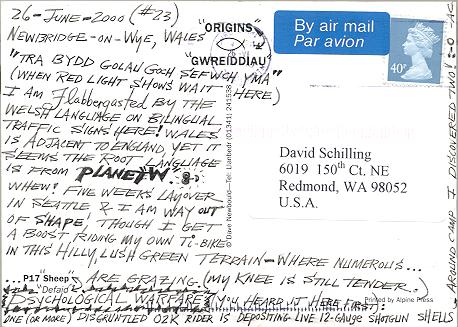 26-JUNE-2000 (#23)
NEWBRIDGE-ON-WYE, WALES
"TRA BYDD GOLAU GOCH SEFWCH YMA"
(WHEN RED LIGHT SHOWS WAIT HERE)
I AM Flabbergasted BY THE
WELSH LANGUAGE ON BILINGUAL
TRAFFIC SIGNS HERE! WALES
IS ADJACENT TO ENGLAND, YET IT
SEEMS THE ROOT LANGUAGE
IS FROM PLANET "W"
WHEW! FIVE WEEKS LAYOVER
IN SEATTLE & I AM WAY OUT
OF SHAPE, THOUGH I GET
A BOOST RIDING MY OWN TI-BIKE
IN THIS HILLY, LUSH GREEN TERRAIN-WHERE NUMEROUS...
P17 Sheep
"Defaid
ARE GRAZING. (MY KNEE IS STILL TENDER.)
PSYCHOLOGICAL WARFARE (YOU HEARD IT HERE FIRST):
ONE (OR MORE) DISGRUNTLED O2K RIDER IS DEPOSITING LIVE 12-GAUGE SHOTGUN SHELLS
AROUND CAMP. I DISCOVERED TWO! :-O -AC
"ORIGINS"
"GWREIDDIAU"
© Dave Newbould-Tel: Llanbedr (01341) 241538
By air mail
Par avion
40P
David Schilling
6019 150th Ct. NE
Redmond, WA 98052
U.S.A.
Printed by Alpine Press